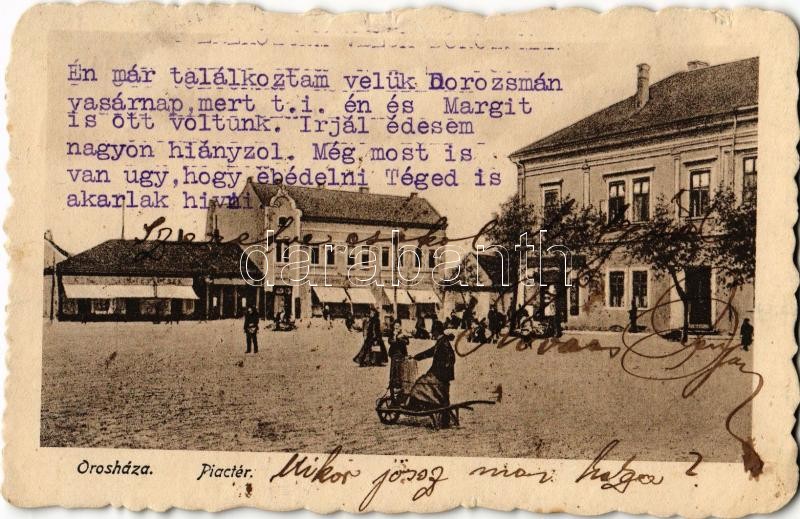 Én már találkoztam velük Dorozsmán
vasárnap,mert t.i. én és Margit
is ott voltunk. Irjál édesem
nagyon hiányzol. Még most is
van ugy,hogy ebédelni Téged is
akarlak hivni
darabanth
Orosháza. Piactér. Mikor jösz mar haza?